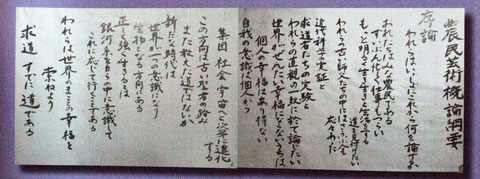 農民芸術概論綱要
序論
われらはいっしょにこれから何を論ずるか
おれたちはみな農民である
ずゐぶん忙がしく仕事もつらい
もっと明るく生き生きと生活をする
道を見付けたい
われらの古い師父たちの中にはさういふ人も
応々あった
近代科学の実証と
求道者たちの実験と
われらの直観の一致に於て論じたい
世界がぜんたい幸福にならないうちは
個人の幸福はあり得ない
自我の意識は個人から
集団 社会 宇宙と次第に進化する
この方向は古い聖者の踏み
また教へた道ではないか
新たな時代は
世界が一の意識になり
生物となる方向にある
正しく強く生きるとは
銀河系を自らの中に意識して
これに応じて行くことである
われらは世界のまことの幸福を
索ねよう
求道すでに道である